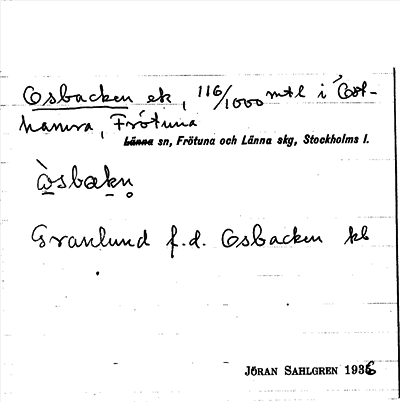 Osbacken ek, 116/1000 mtl i Öst-
hamra, Frötuna
Länna sn, Frötuna och Länna skg, Stockholms l.
òsbakn̥
Granlund f.d. Osbacken kb
JÖRAN SAHLGREN 1936